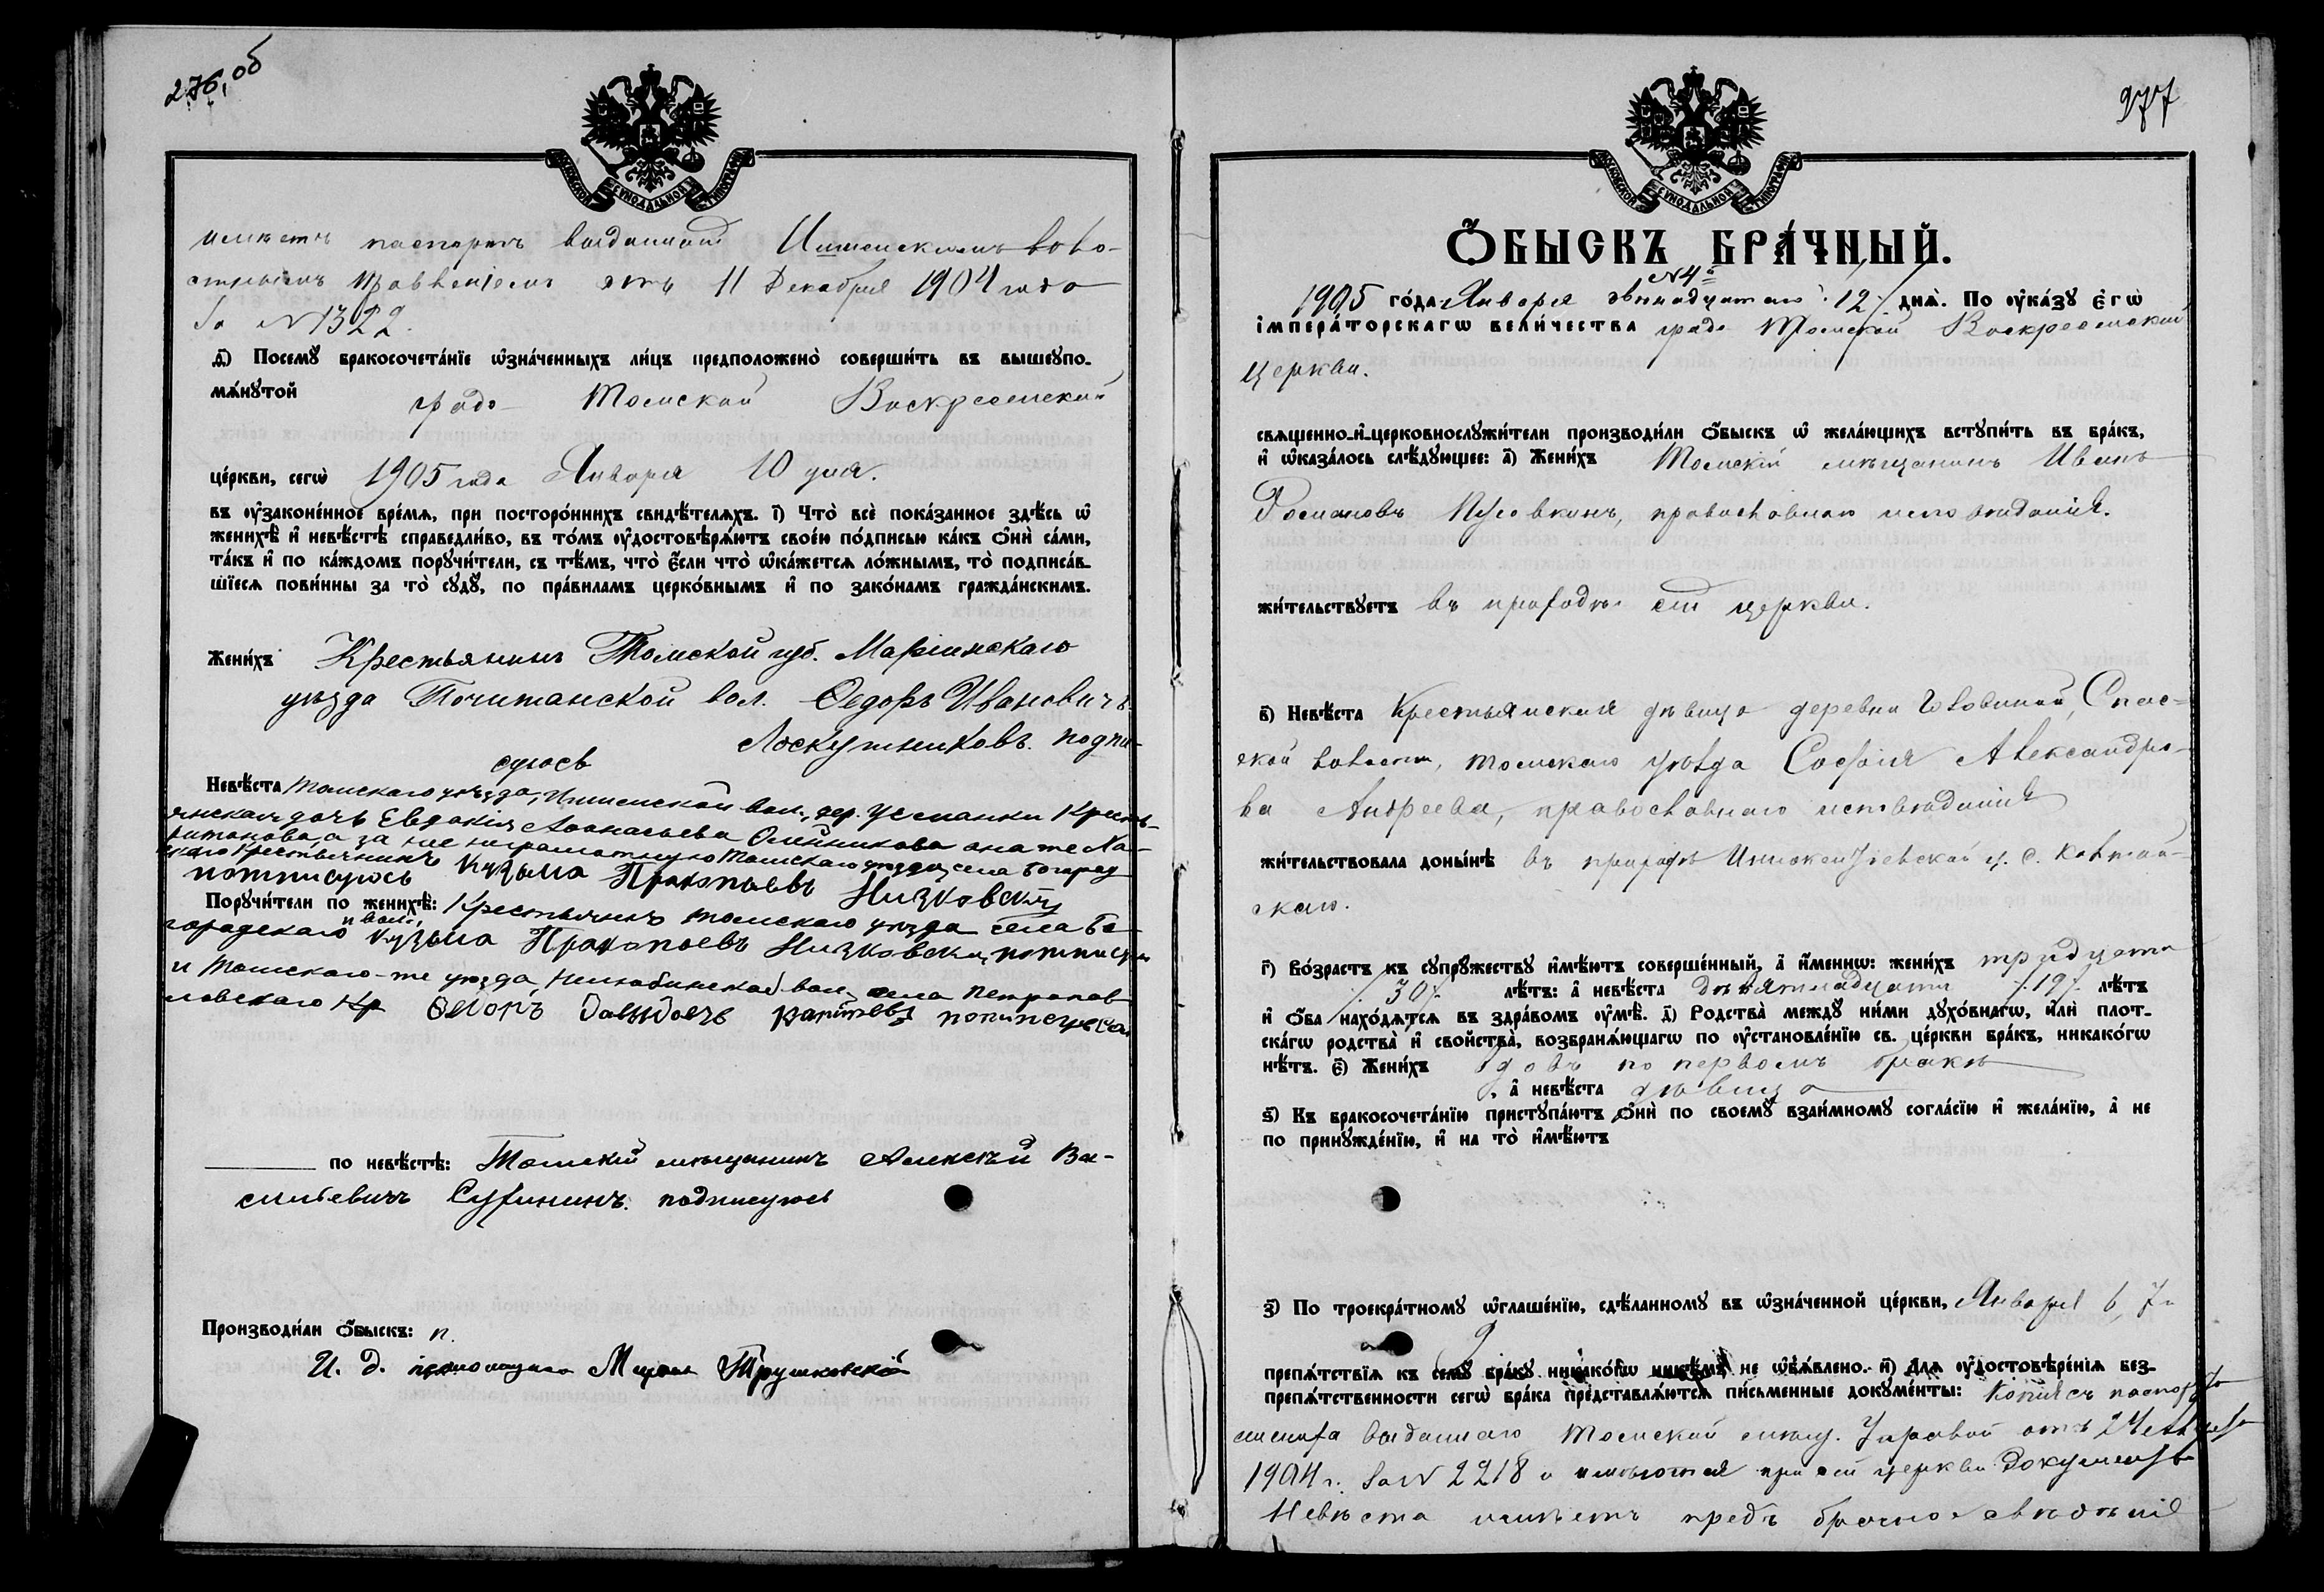 276, об
имѣетъ паспортъ выданный Ишимскимъ воло-
стнымъ Правленіемъ отъ 11 Декабря 1904 года
за № 1322.
д҃) Посемꙋ бракосочета́нїе ѡ҆зна́ченныхъ ли́цъ предположено̀ соверши́ть въ вышеупо-
мѧ́нꙋтой
градо- Томской Воскресенской
це́ркви, сегѡ̀ 1905 года Января 10 дня.
въ ᲂу҆законе́нное вре́мѧ, при посторо́ннихъ свидѣ́телѧхъ. і҃) Что̀ всѐ пока́занное здѣ́сь ѡ҆
женихѣ̀ и҆ невѣ́стѣ справедли́во, въ то́мъ ᲂу҆достовѣрѧ́ютъ свое́ю по́дписью ка́къ ѻ҆нѝ са́ми,
та́къ и҆ по ка́ждомъ порꙋчи́тели, съ тѣ́мъ, что̀ є҆́сли что̀ ѡ҆ка́жется ло́жнымъ, то̀ подписа́в-
шїеся пови́нны за то̀ сꙋдꙋ̀, по пра́виламъ церко́внымъ и҆ по зако́намъ гражда́нскимъ.
Жени́хъ Крестьянинъ Томской губ. Маріинскаго
уѣзда Почитанской вол. Ѳедоръ Ивановичъ
Лоскутниковъ. подпи-
суюсь
Невѣ́ста Томскаго уѣзда, Ишимской вол., дер. Успанки Кресть-
янская дочь Евдокія Аѳонасьева Олейникова она же Ха-
ритонова, а за нее неграмотную Томскаго уѣзда, села Богород
скаго Крестьянинъ Кузьма Пракопьевъ Низковскій
потписуюсь
Порꙋчи́тели по женихѣ̀: Крестьянинъ Томскаго уѣзда села Бо-
городскаго и вол. Кузьма Пракопьевъ Низковски потписуюсь
и Томскаго-же уѣзда, Нелюбинской вол, села Петропав
ловскаго Кр Ѳедоръ Давыдовъ
по невѣ́стѣ: Томскій мѣщанинъ Алексѣй Ва-
сильевичъ Сухининъ. подписуюсь
Производи́ли ѻ҆́быскъ: п.
И. д. псаломщика Трушковскій
277
Ѻ҆́БЫСКЪ БРА́ЧНЫЙ.
№ 4й
1905 го́да Января двѣнадцатаго /12/ днѧ̀. По ᲂу҆ка́зꙋ є҆гѡ̀
і҆мпера́торскагѡ вели́чества градо Томской Воскресенской
церкви.
свѧще́нно-и҆-церковнослꙋжи́тели производи́ли ѻ҆́быскъ ѡ҆ жела́ющихъ встꙋпи́ть въ бра́къ,
и҆ ѡ҆каза́лось слѣ́дꙋющее: а҃) Жени́хъ Томскій мѣщанинъ Иванъ
Романовъ Пусовкинъ, православнаго исповѣданія.
жи́тельствꙋетъ въ приходѣ сей церкви.
в҃) Невѣ́ста Крестьянская дѣвица деревни Головиной, Спас-
ской волости, Томскаго уѣзда Софія Александро-
ва Андреева, православнаго исповѣданія
жи́тельствовала доны́нѣ въ приходѣ Иннокентіевской ц. с. Колтай-
скаго.
г҃) Во́зрастъ къ сꙋпрꙋ́жествꙋ и҆мѣ́ютъ соверше́нный, а҆ и҆́меннѡ: жени́хъ тридцати
/. 30 /. лѣ́тъ: а҆ невѣ́ста девятнадцати /. 19 /. лѣ́тъ
и҆ ѻ҆́ба нахо́дѧтсѧ въ здра́вомъ ᲂу҆мѣ̀. д҃) Родства̀ междꙋ̀ ни́ми дꙋхо́внагѡ, и҆лѝ плот-
ска́гѡ родства̀ и҆ сво́йства, возбранѧ́ющагѡ по ᲂу҆становле́нїю св. це́ркви бра́къ, никако́гѡ
нѣ́тъ. є҃) Жени́хъ вдовъ по первомъ бракѣ
, а҆ невѣ́ста дѣвица
ѕ҃) Къ бракосочета́нїю пристꙋпа́ютъ ѻ҆нѝ по своемꙋ̀ взаи́мномꙋ согла́сїю и҆ жела́нїю, а҆ не
по принꙋжде́нїю, и҆ на то̀ и҆мѣ́ютъ
з҃) По троекра́тномꙋ ѡ҆глаше́нїю, сдѣ́ланномꙋ въ ѡ҆зна́ченной це́ркви, Января 6, 7 и
9
препѧ́тствїѧ къ семꙋ̀ бра́кꙋ никако́гѡ никѣ́мъ не ѡ҆б̾ѧ́влено. и҃) Длѧ ᲂу҆достовѣре́нїѧ без-
препѧ́тственности сегѡ̀ бра́ка представлѧ́ютсѧ пи́сьменные докꙋме́нты: Копія съ паспорта
жениха выданнаго Томской мѣщ. Управой отъ
1904 г. за № 2218 и имѣются при сей церкви документы
Невѣста имѣетъ предъ брачное свѣдѣніе